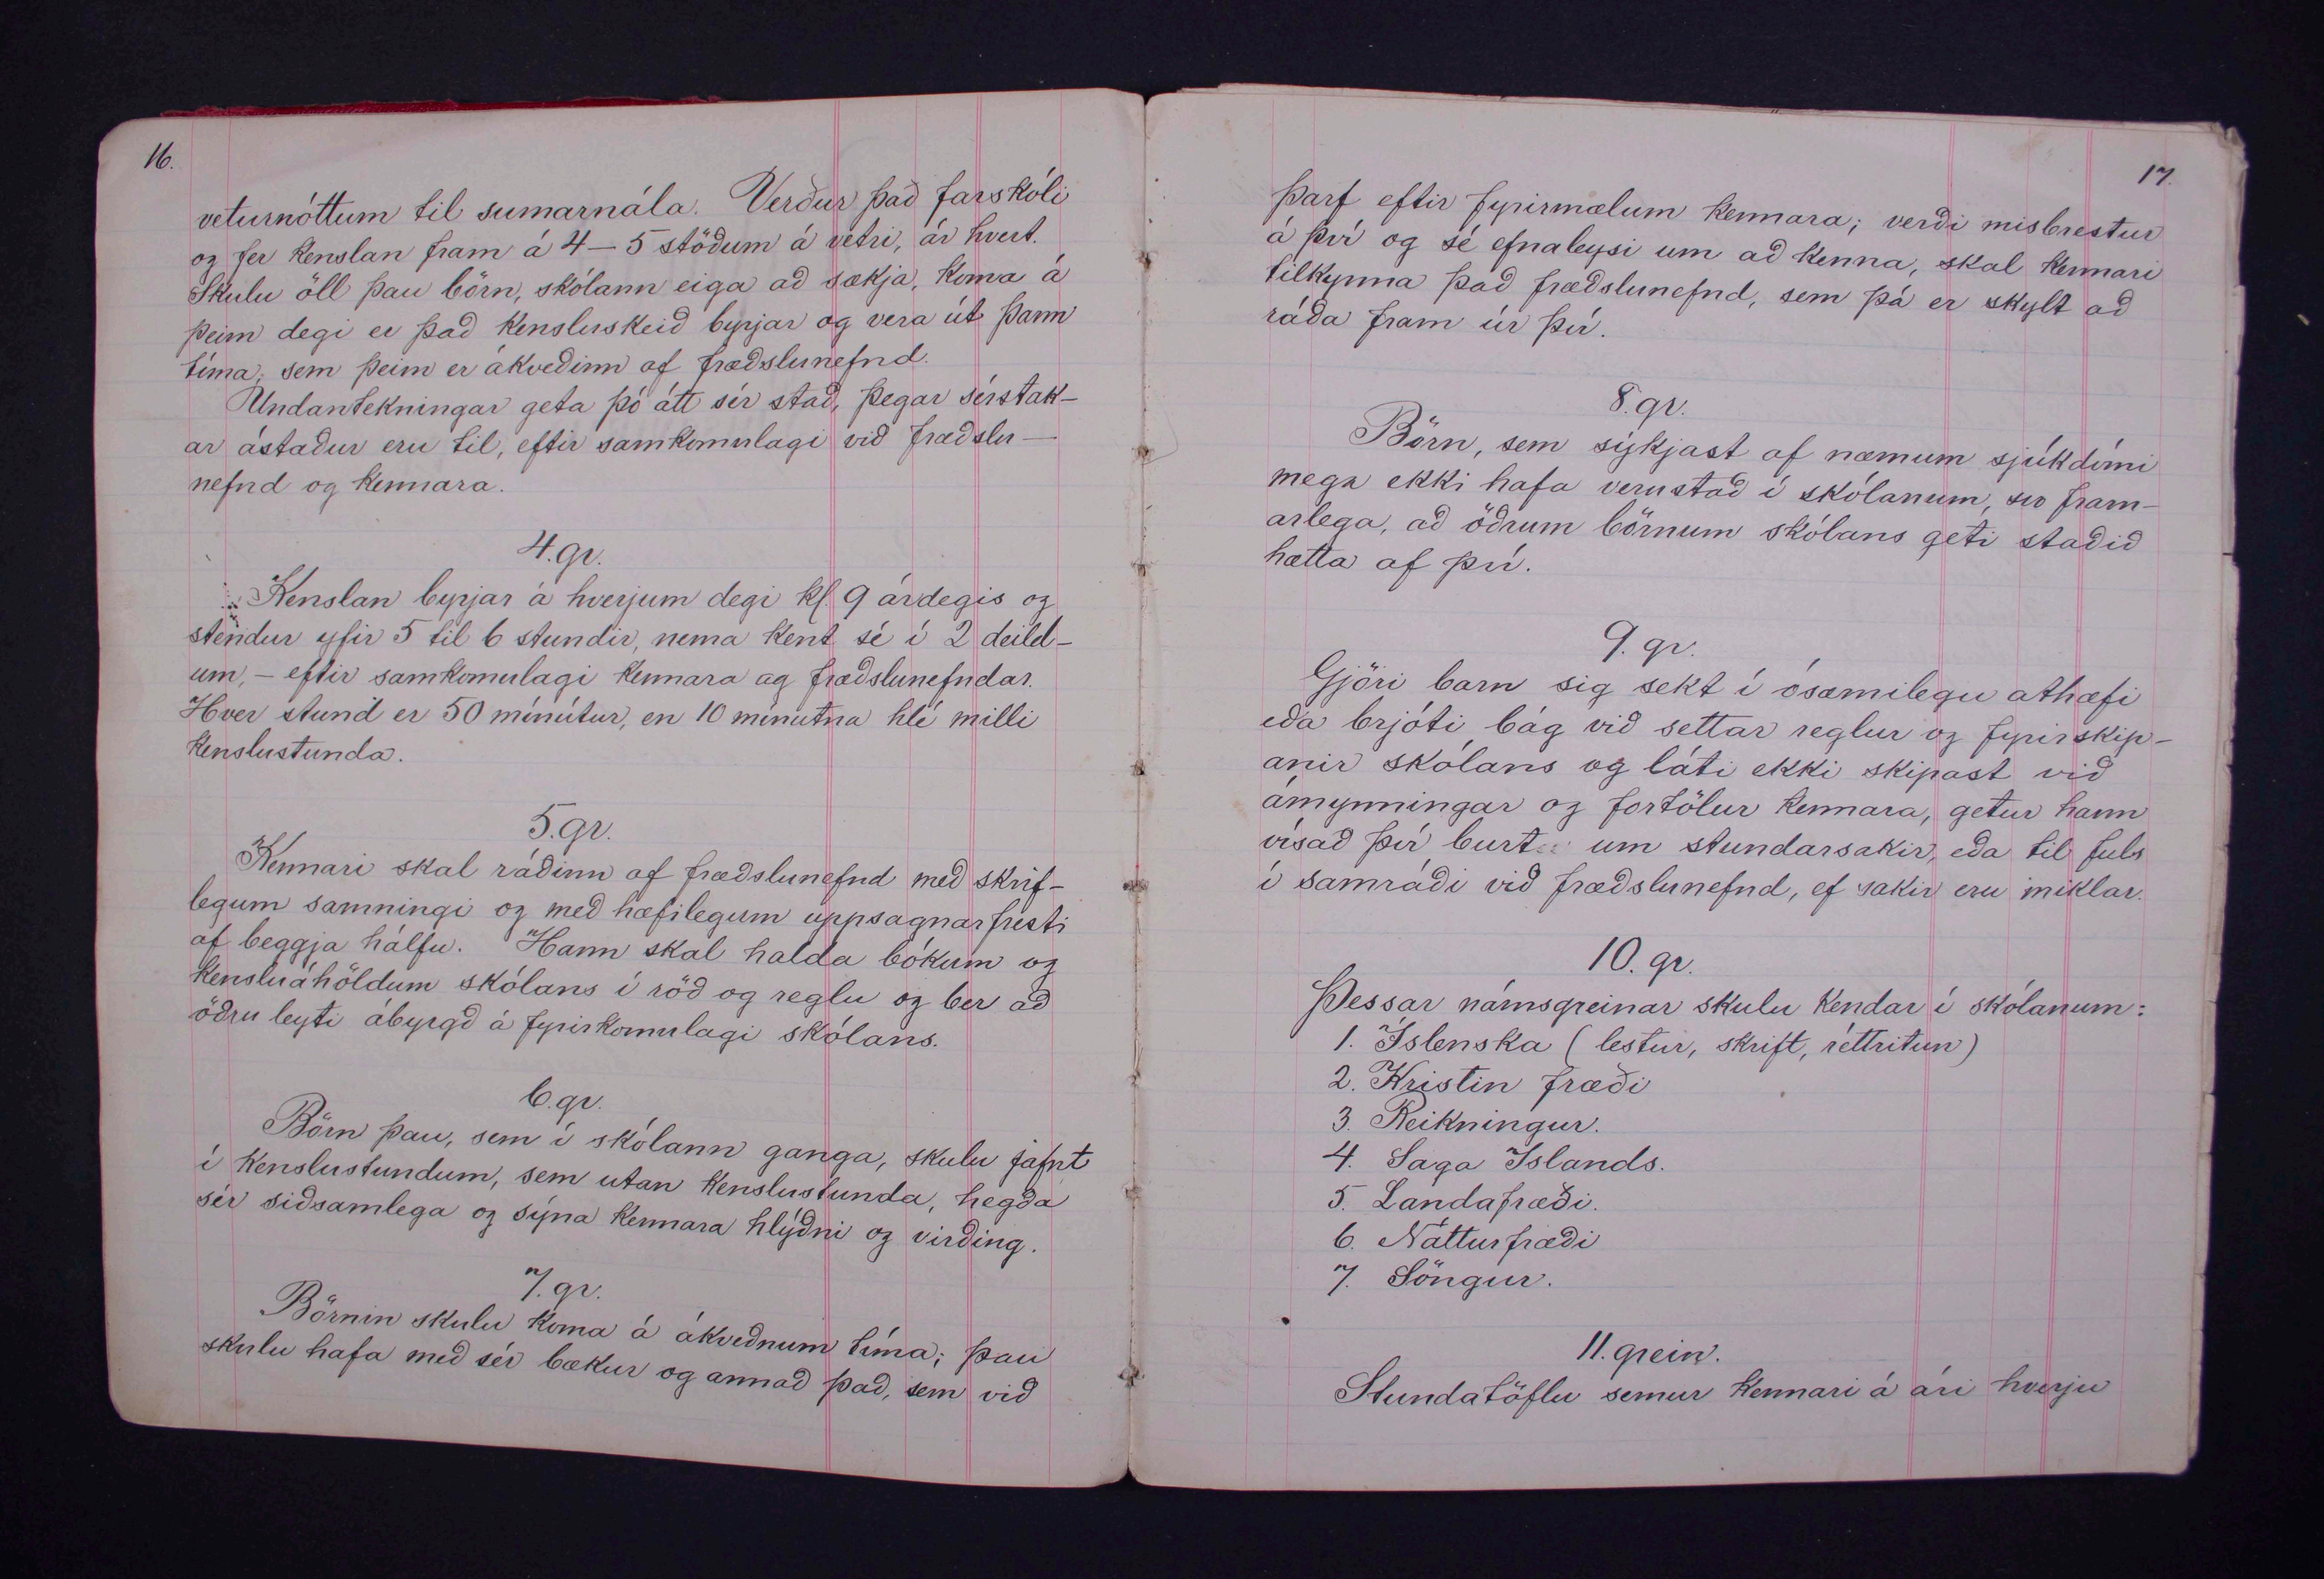 16.
veturnóttum til sumarnála. Verður það farskóli
og fer kenslan fram á 4–5 stöðum á vetri, ár hvert.
Skulu öll þau börn, skólann eiga að sækja, koma á
þeim degi er það kensluskeið byrjar og vera út þann
tíma, sem þeim er ákveðinn af fræðslunefnd.
Undantekningar geta þó átt sér stað, þegar sérstak-
ar ástaður eru til, eftir samkomulagi við fræðslu-
nefnd og kennara.
4. gr.
Kenslan byrjar á hverjum degi kl. 9 árdegis og
stendur yfir 5 til 6 stundir, nema kent sé í 2 deild-
um, – eftir samkomulagi kennara og fræðslunefndar.
Hver stund er 50 mínútur, en 10 mínutna hlé milli
kenslustunda.
5. gr.
Kennari skal ráðinn af fræðslunefnd með skrif-
legum samningi og með hæfilegum uppsagnarfresti
af beggja hálfu. Hann skal halda bókum og
kensluáhöldum skólans í röð og reglu og ber að
öðru leyti ábyrgð á fyrirkomulagi skólans.
6. gr.
Börn þau, sem í skólann ganga, skulu jafnt
í kenslustundum, sem utan kenslustunda, hegða
sér siðsamlega og sýna kennara hlýðni og virðing.
7. gr.
Börnin skulu koma á ákveðnum tíma; þau
skulu hafa með sér bækur og annað það, sem við
17.
þarf eftir fyrirmælum kennara; verði misbrestur
á því og sé efnaleysi um að kenna, skal kennari
tilkynna það fræðslunefnd, sem þá er skylt að
ráða fram úr því.
8. gr.
Börn, sem sýkjast af næmum sjúkdómi
mega ekki hafa verustað í skólanum, svo fram-
arlega, að öðrum börnum skólans geti staðið
hætta af því.
9. gr.
Gjöri barn sig sekt í ósæmilegu athæfi
eða brjóti bág við settar reglur og fyrirskip-
anir skólans og láti ekki skipast við
ámynningar og fortölur kennara, getur hann
vísað því burt um stundarsakir, eða til fuls
í samráði við fræðslunefnd, ef sakir eru miklar.
10. gr.
Þessar námsgreinar skulu kendar í skólanum:
1. Íslenska (lestur, skrift, réttritun)
2. Kristin fræði
3. Reikningur.
4. Saga Islands.
5. Landafræði.
6. Nátturfræði
7. Söngur.
11. grein.
Stundatöflu semur kennari á ári hverju